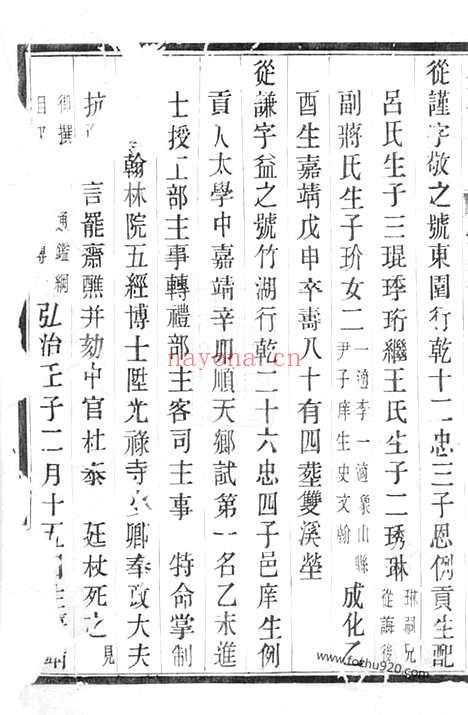 從謹字敬之號東園行乾十二忠三子恩例貢生配
呂氏生子三琨琇珩繼王氏生子二琇琳琳嗣兄從誨後
副蔣氏生子玠女二一適李一適象山縣尹子庠生史文翰成化乙
酉生嘉靖戊申卒壽八十有四葬雙溪塋
從謙字益之號竹湖行乾二十六忠四子邑庠生例
貢入太學中嘉靖辛卯順天鄉試第一名乙未進
士授工部主事轉禮部主客司主事 特命掌制
翰林院五經博士陞光祿寺少卿奉政大夫
抗 言罷齋醮并劾中官杜泰 廷杖死之見
御撰 通鑑綱目 弘治壬子二月十五
nayona.cn
www.fozhu920.com